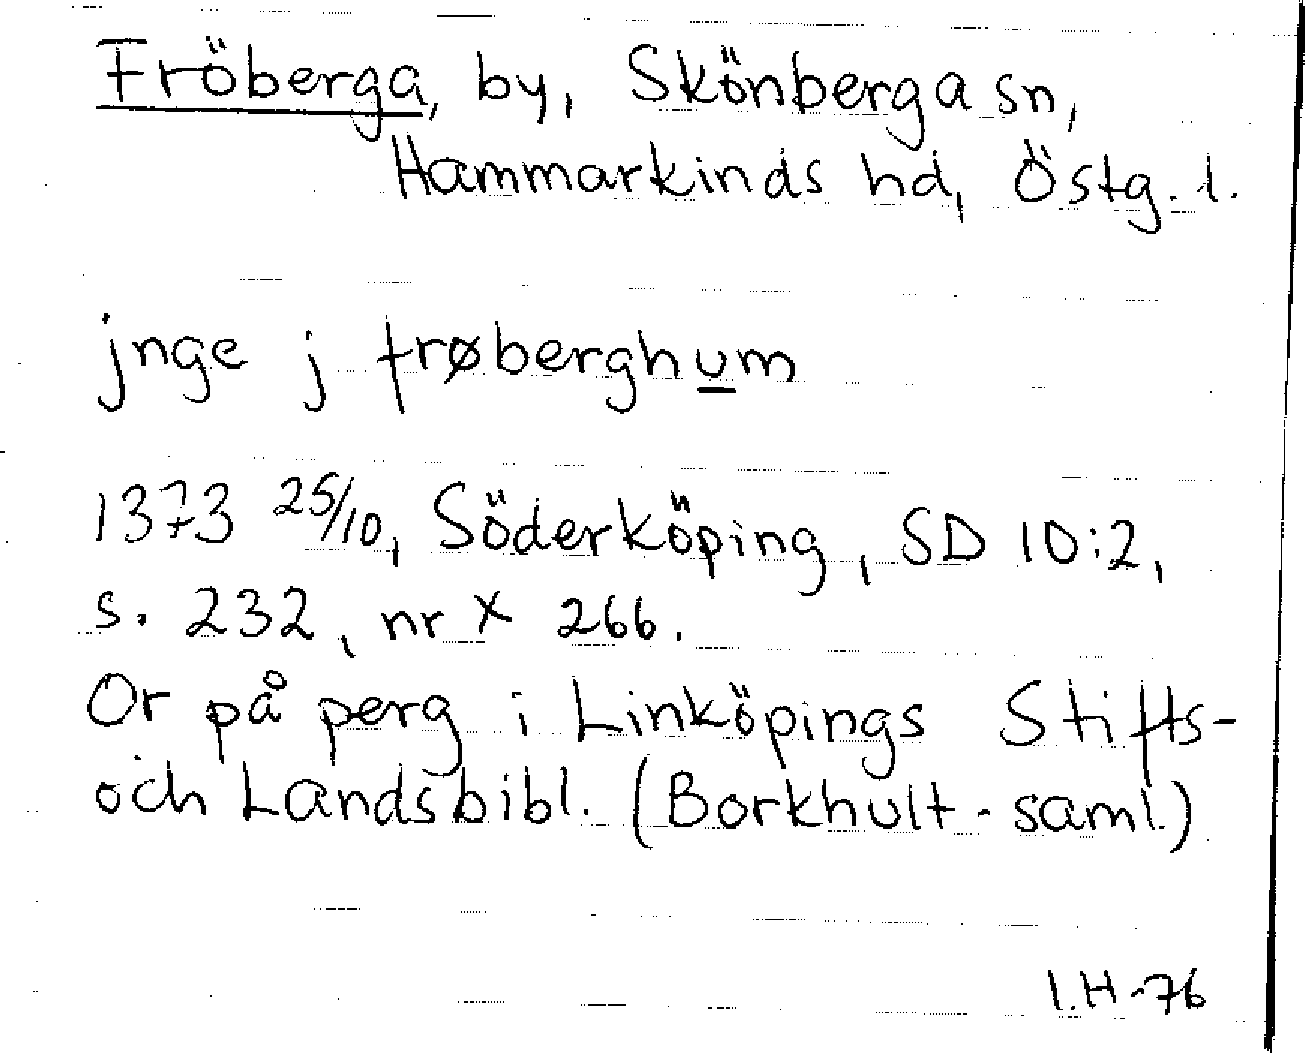 Fröberga, by, Skönberga sn,
Hammarkinds hd, Östg. l.
jnge j frøberghum
1373 25/10, Söderköping, SD 10:2,
s. 232, nr X 266.
Or på perg i Linköpings Stifts-
och Landsbibl. (Borkhult-saml.)
I.H-76